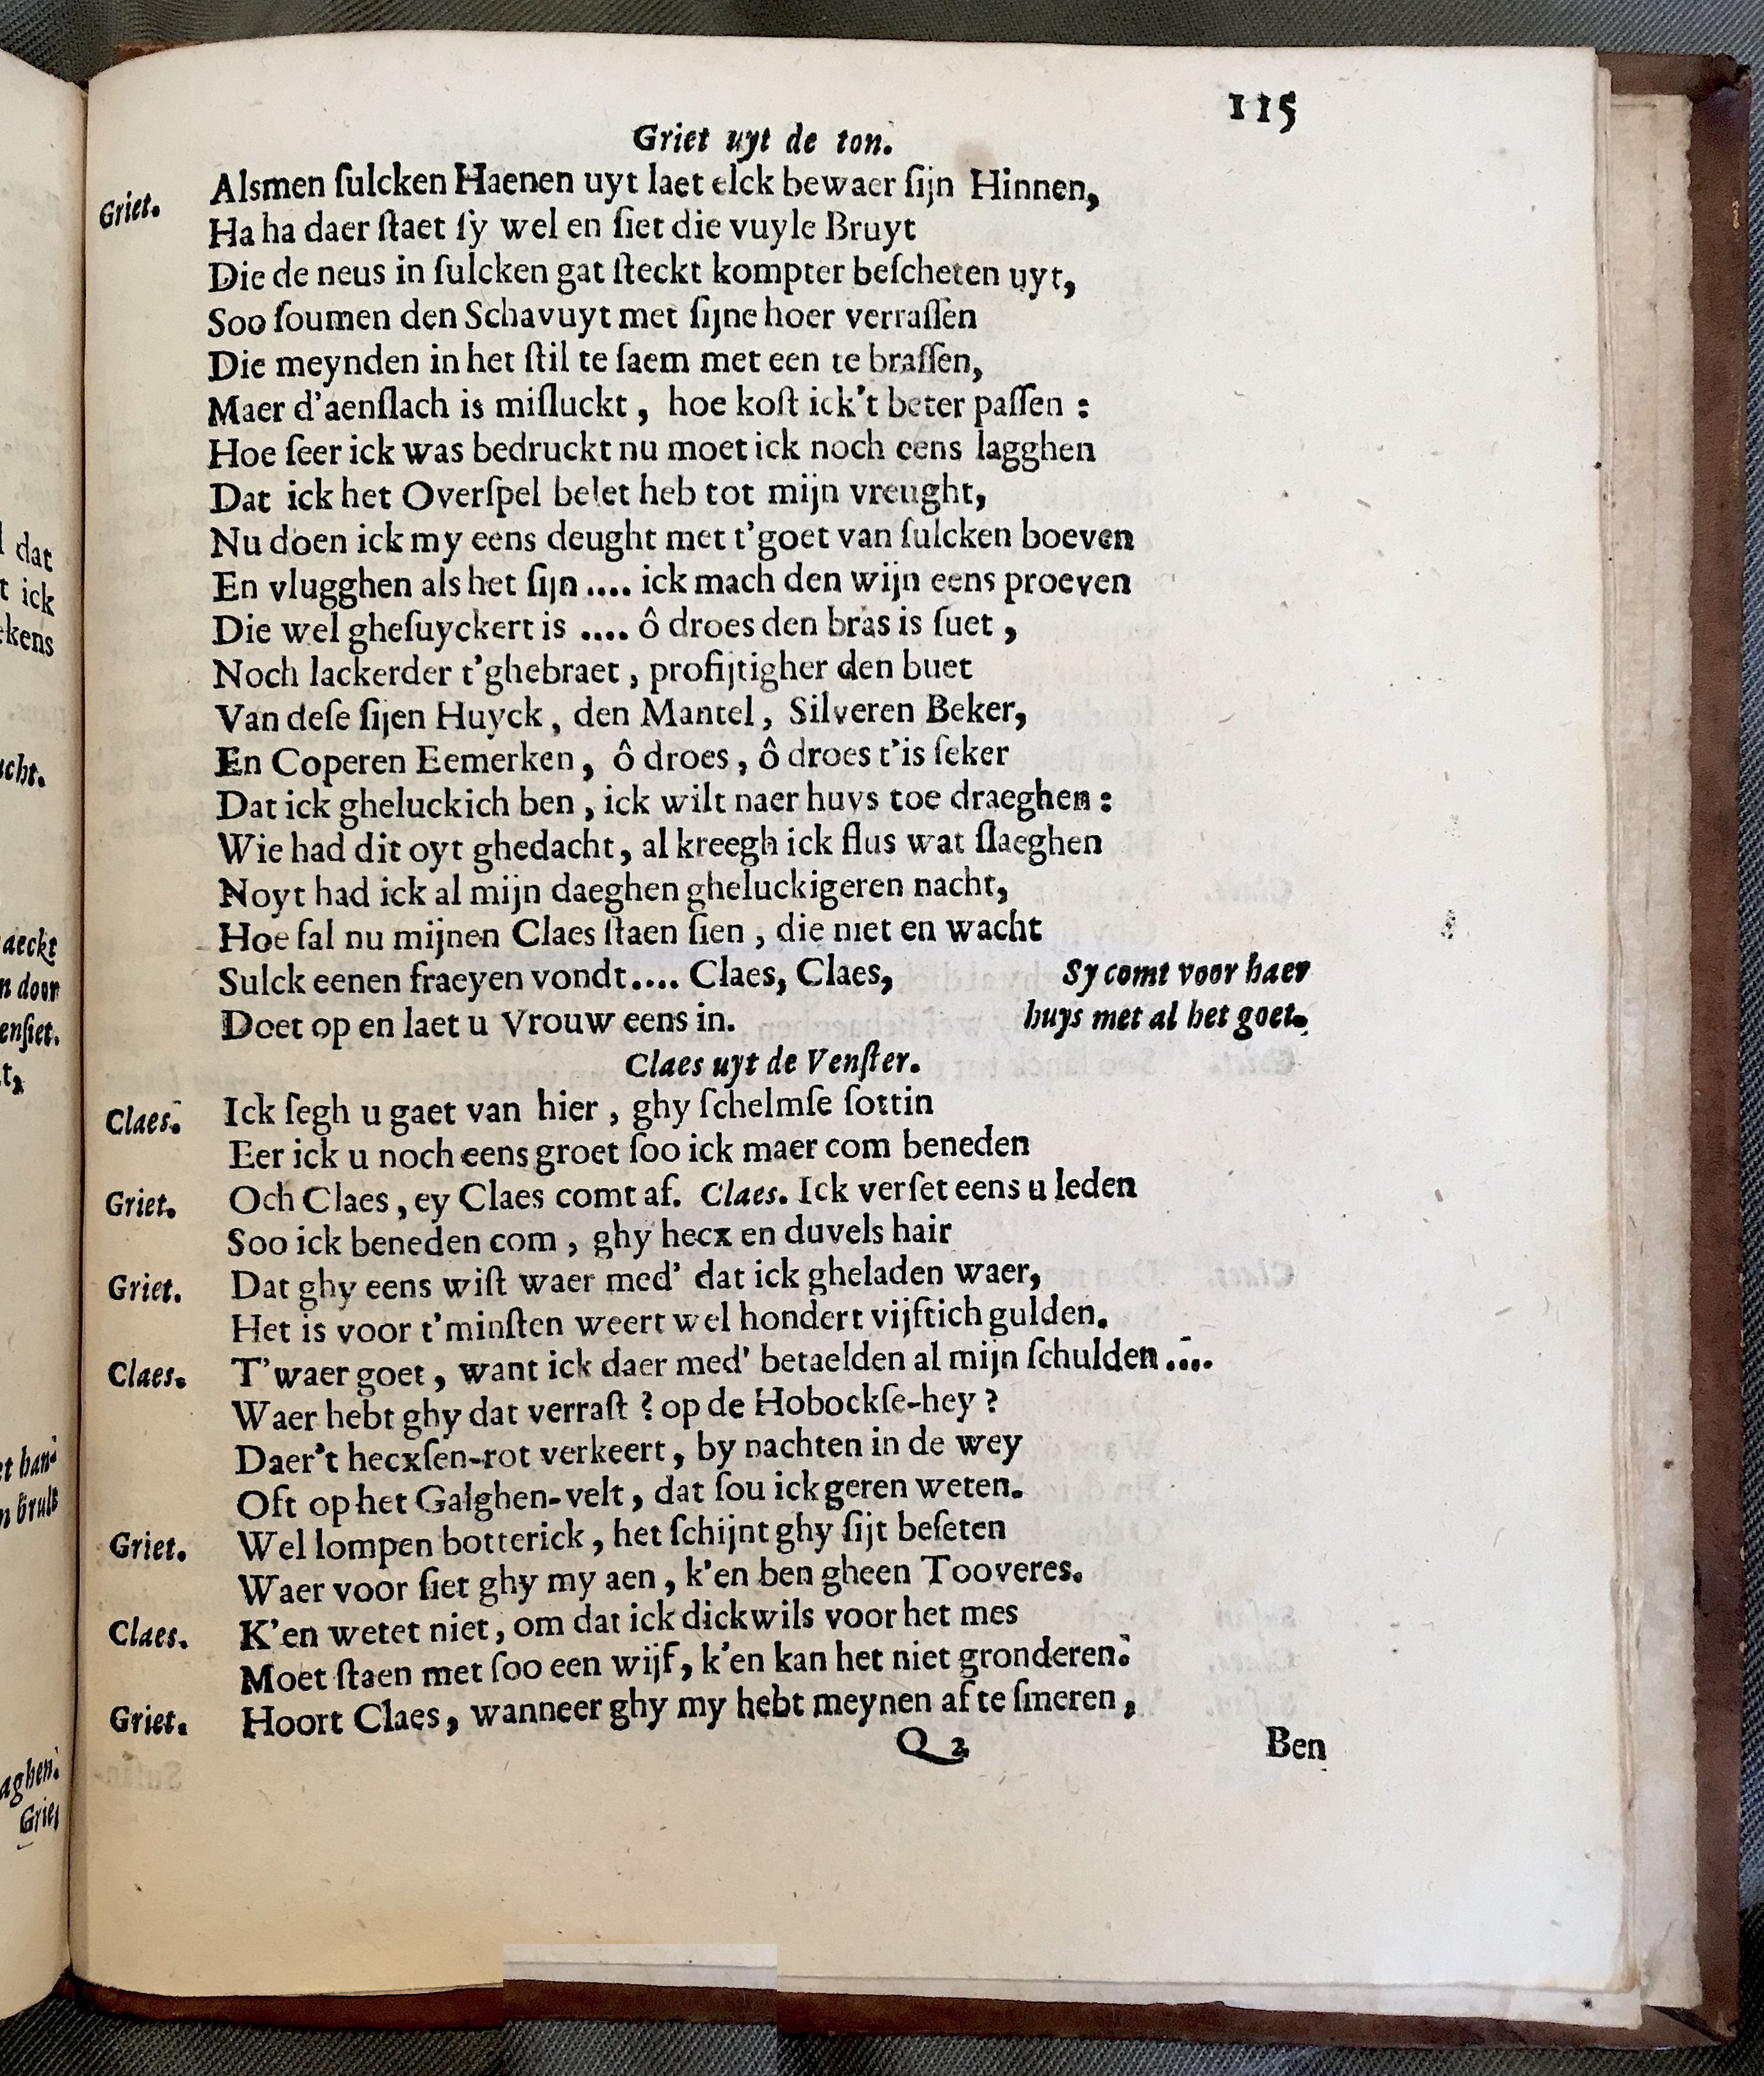 115
Griet uyt de ton.
Griet. Alsmen ſulcken Haenen uyt laet elck bewaer ſijn Hinnen,
Ha ha daer ſtaet ſy wel en ſiet die vuyle Bruyt
Die de neus in ſulcken gat ſteckt kompter beſcheten uyt,
Soo ſoumen den Schavuyt met ſijne hoer verraſſen
Die meynden in het ſtil te ſaem met een te braſſen,
Maer d'aenſlach is miſluckt, hoe koſt ick't beter paſſen :
Hoe ſeer ick was bedruckt nu moet ick noch eens lagghen
Dat ick het Overſpel belet heb tot mijn vreught,
Nu doen ick my eens deught met t'goet van ſulcken boeven
En vlugghen als het ſijn .... ick mach den wijn eens proeven
Die wel gheſuyckert is .... ô droes den bras is ſuet,
Noch lackerder t'ghebraet, profijtigher den buet
Van deſe ſijen Huyck, den Mantel, Silveren Beker,
En Coperen Eemerken, ô droes, ô droes t'is ſeker
Dat ick gheluckich ben, ick wilt naer huys toe draeghen :
Wie had dit oyt ghedacht, al kreegh ick flus wat ſlaeghen
Noyt had ick al mijn daeghen gheluckigeren nacht,
Hoe ſal nu mijnen Claes ſtaen ſien, die niet en wacht
Sulck eenen fraeyen vondt.... Claes, Claes, Sy comt voor haer
Doet op en laet u Vrouw eens in. huys met al het goet.
Claes uyt de Venſter.
Claes. Ick ſegh u gaet van hier, ghy ſchelmſe ſottin
Eer ick u noch eens groet ſoo ick maer com beneden
Griet. Och Claes, ey Claes comt af. Claes. Ick verſet eens u leden
Soo ick beneden com, ghy hecx en duvels hair
Griet. Dat ghy eens wiſt waer med' dat ick gheladen waer,
Het is voor t'minſten weert wel hondert vijftich gulden.
Claes. T'waer goet, want ick daer med' betaelden al mijn ſchulden ....
Waer hebt ghy dat verraſt ? op de Hobockſe-hey ?
Daer't hecxſen-rot verkeert, by nachten in de wey
Oft op het Galghen-velt, dat ſou ick geren weten.
Griet. Wel lompen botterick, het ſchijnt ghy ſijt beſeten
Waer voor ſiet ghy my aen, k'en ben gheen Tooveres.
Claes. K'en wetet niet, om dat ick dickwils voor het mes
Moet ſtaen met ſoo een wijf, k'en kan het niet gronderen.
Griet. Hoort Claes, wanneer ghy my hebt meynen af te ſmeren,
Q 2 Ben